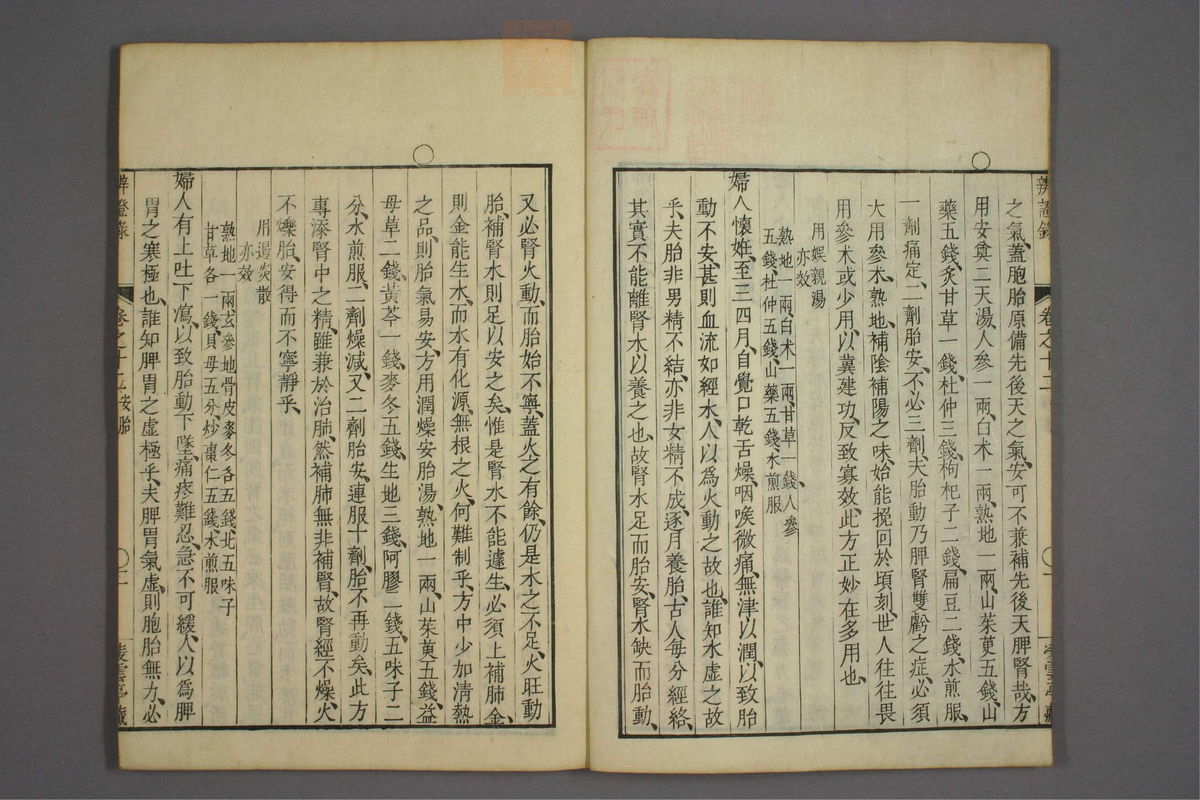 辨證錄
卷之十二
之氣、蓋胞胎原備先後天之氣、安可不兼補先後天脾腎哉、方
用安奠二天湯、人參一兩、白术一兩、熟地一兩、山茱萸五錢、山
藥五錢、炙甘草一錢、杜仲三錢、枸杞子二錢、扁豆二錢、水煎服、
一劑痛定、二劑胎安、不必三劑、夫胎動乃脾腎雙虧之症、必須
大用參术、熟地、補陰補陽之味、始能挽回於頃刻、世人往往畏
用參术或少用、以冀建功、反致寡效、此方正妙在多用也、
用娛親湯
亦效
熟地一兩、白术一兩、甘草一錢、人參
五錢、杜仲五錢、山藥五錢、水煎服
婦人懷姙、至三四月、自覺口乾舌燥、咽喉微痛、無津以潤、以致胎
動不安、甚則血流如經水、人以爲火動之故也、誰知水虛之故
乎、夫胎非男精不結、亦非女精不成、逐月養胎、古人每分經絡、
其實不能離腎水以養之也、故腎水足而胎安、腎水缺而胎動、
又必腎火動、而胎始不寧、蓋火之有餘、仍是水之不足、火旺動
胎、補腎水則足以安之矣、惟是腎水不能遽生、必須上補肺金、
則金能生水、而水有化源、無根之火、何難制乎、方中少加清熱
之品、則胎氣易安、方用潤燥安胎湯、熟地一兩、山茱萸五錢、益
母草二錢、黃芩一錢、麥冬五錢、生地三錢、阿膠二錢、五味子二
分、水煎服、二劑燥減、又二劑胎安、連服十劑、胎不再動矣、此方
專添腎中之精、雖兼於治肺、然補肺無非補腎、故腎經不燥、火
不爍胎、安得而不寧靜乎、
用遏炎散
亦效
熟地一兩、玄參地骨皮麥冬各五錢、北五味子
甘草各一錢、貝母五分、炒棗仁五錢、水煎服
婦人有上吐下瀉、以致胎動下墜、痛疼難忍、急不可緩、人以爲脾
胃之寒極也、誰知脾胃之虛極乎、夫脾胃氣虛、則胞胎無力、必
辨證錄
卷之十二安胎
二